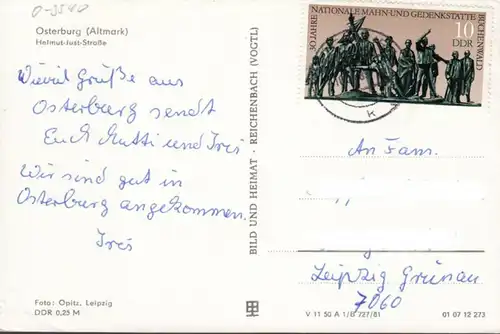 0-3540
Osterburg (Altmark)
Helmut-Just-Straße
Wieviel Grüße aus
Osterburg sendt
Euch Mutti und Iris
Wir sind gut in
Osterburg angekommen.
Iris
Foto: Opitz, Leipzig
DDR 0,25 M
BILD UND HEIMAT · REICHENBACH (VOGTL)
30 JAHRE NATIONALE MAHN- UND GEDENKSTÄTTE
BUCHENWALD
10
DDR
K
An Fam.
Leipzig Grünau
7060
V 11 50 A 1/B 727/81 01 07 12 273